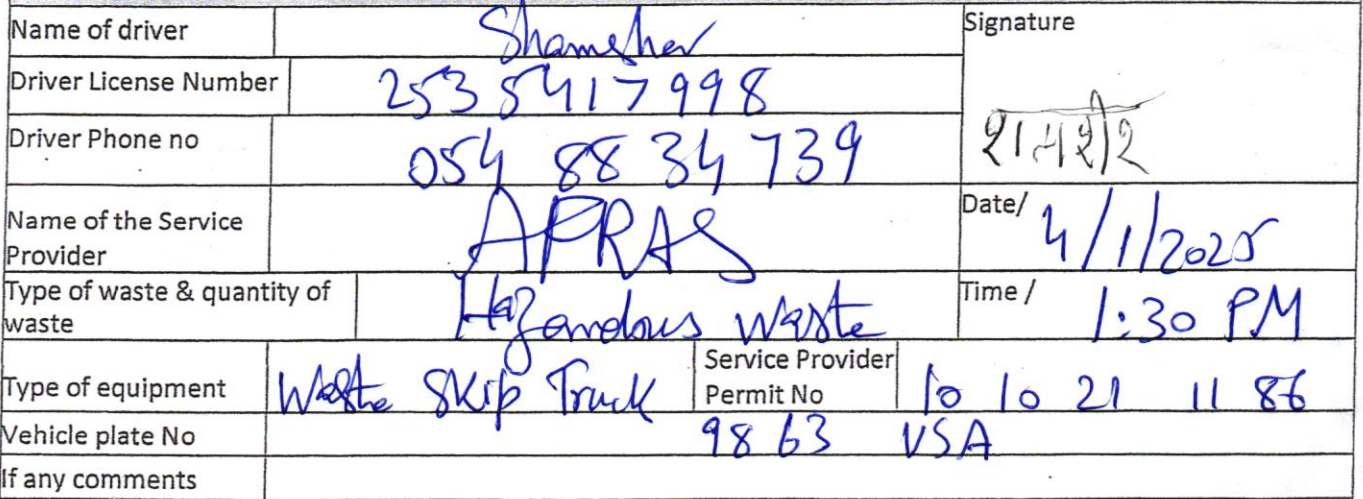 Name of driver Shamsher Signature
Driver License Number 253 5417998
Driver Phone no 054 88 34 739 शमशेर
Name of the Service Provider APRAS Date/ 4/1/2025
Type of waste & quantity of waste Hazardous waste Time / 1:30 PM
Type of equipment Waste Skip Truck Service Provider Permit No 10 10 21 11 86
Vehicle plate No 9863 VSA
If any comments